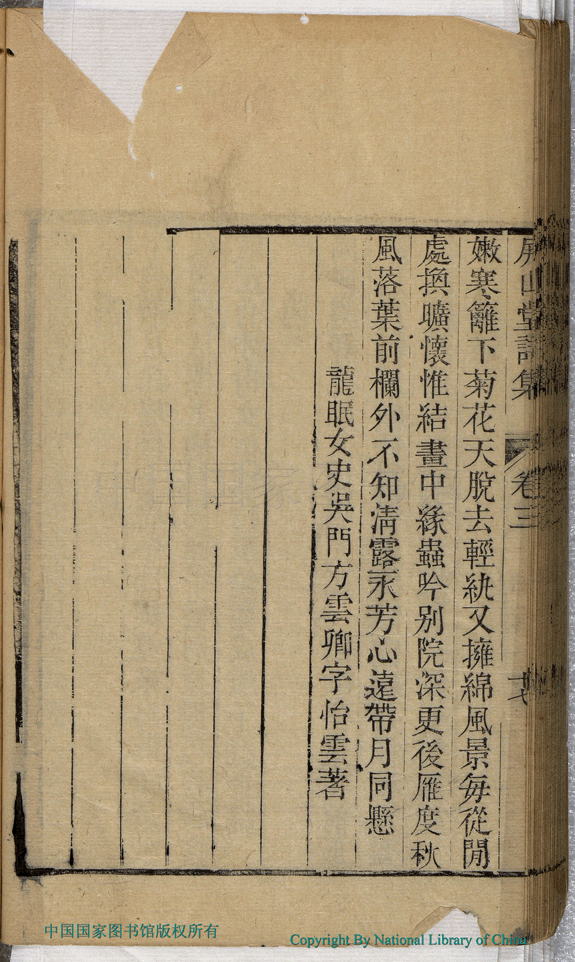 屏山堂詩集 卷三
嫩寒籬下菊花天脫去輕紈又擁綿風景每從閒
處換曠懷惟結畫中緣蟲吟別院深更後雁度秋
風落葉前欄外不知清露永芳心遠帶月同懸
龍眠女史吳門方雲卿字怡雲著
中国国家图书馆版权所有
Copyright By National Library of China